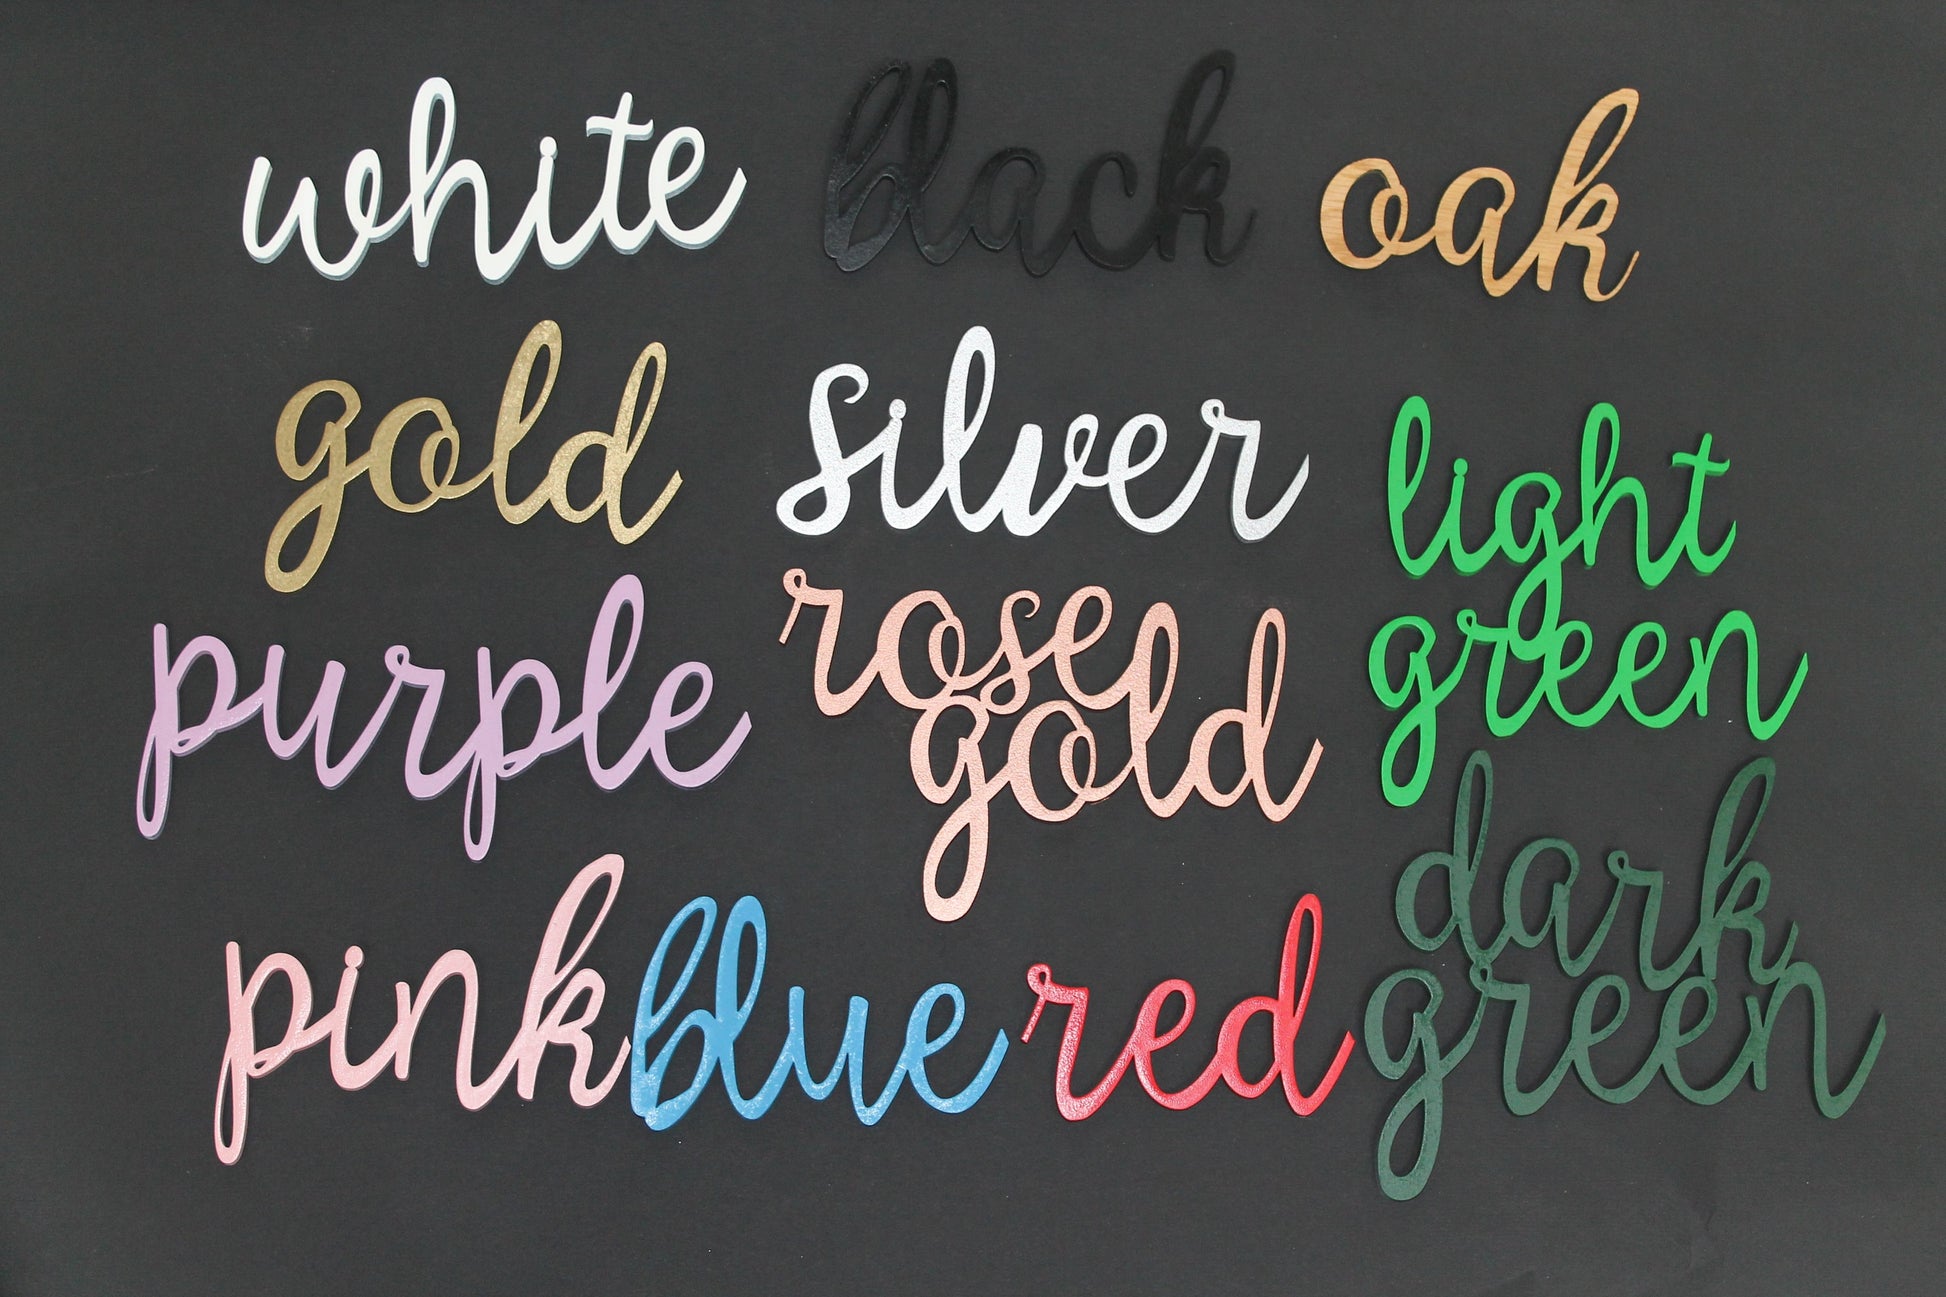 white black oak
gold silver light
green
purple rose
gold
pink blue red dark
green